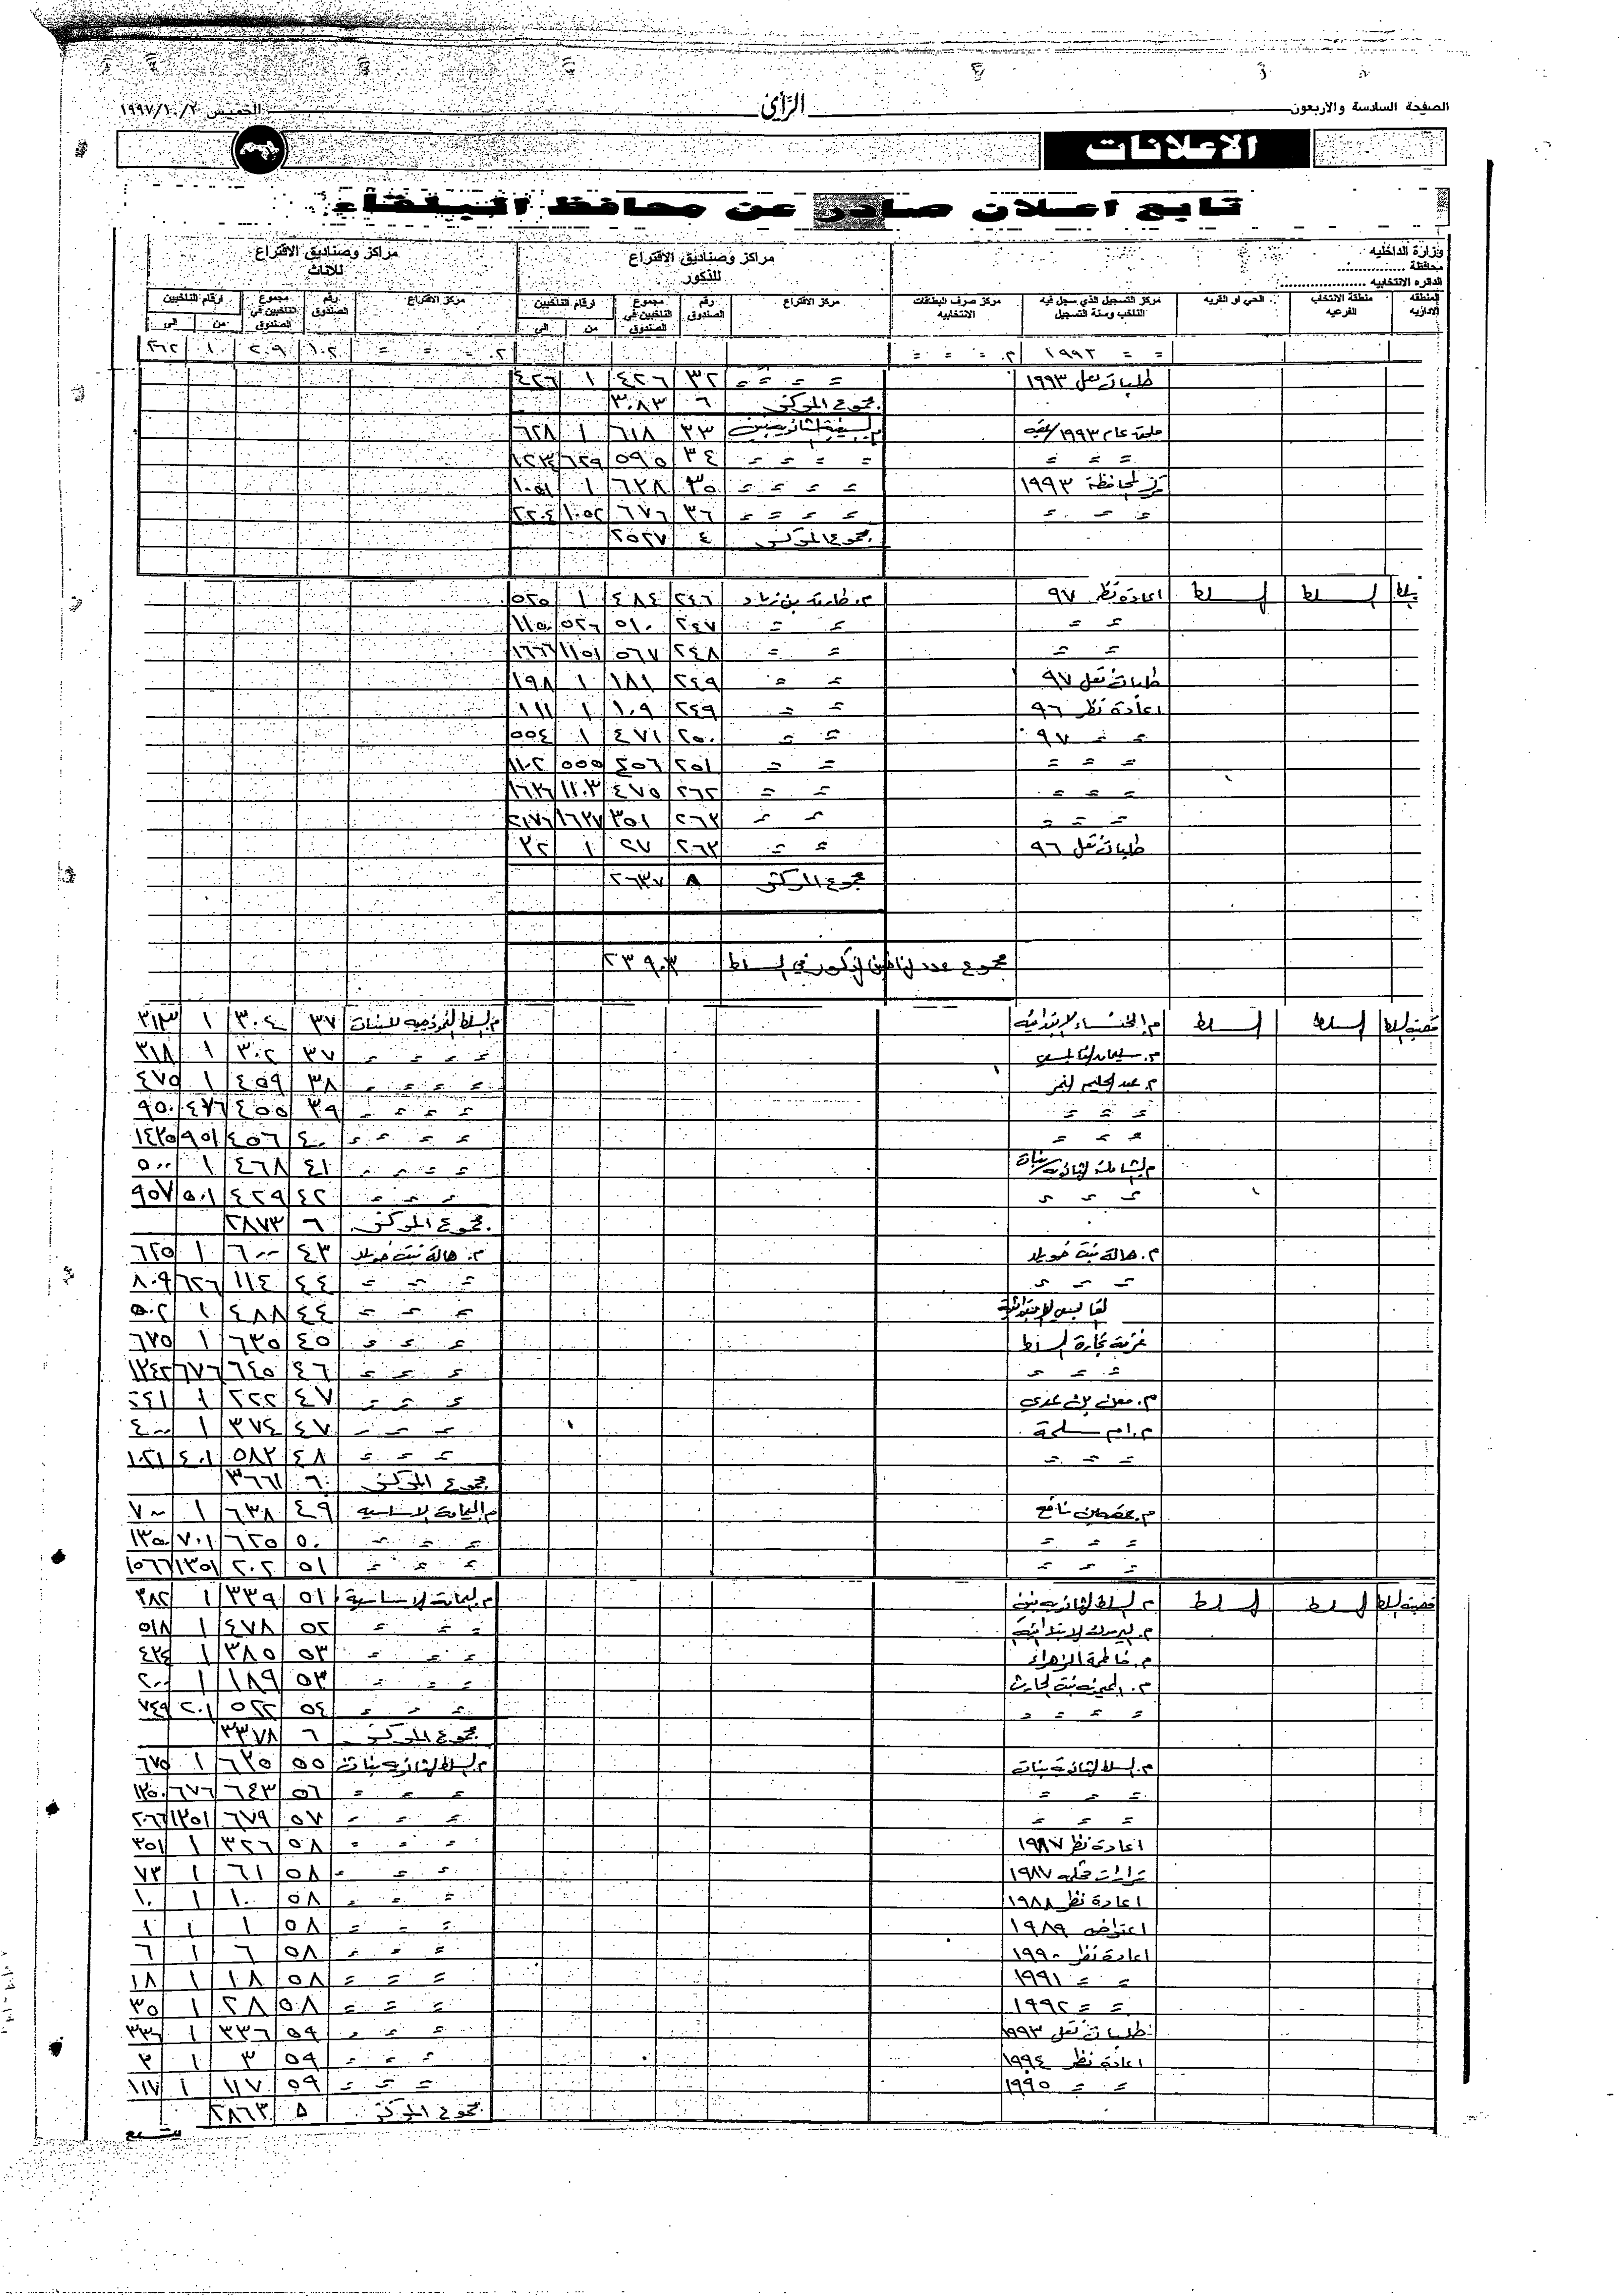 الصفحة السادسة والاربعون الرأي الخميس ١٩٩٧/١٠/٢
الاعلانات
تابع اعلان صادر عن محافظ البلقاء
وزارة الداخليه
محافظة ................
الدائره الانتخابيه ....................
مراكز وصناديق الاقتراع للذكور
مراكز وصناديق الاقتراع للاناث
المنطقه الاداريه منطقة الانتخاب الفرعيه الحي او القريه مركز التسجيل الذي سجل فيه الناخب وسنة التسجيل مركز صرف البطاقات الانتخابيه مركز الاقتراع رقم الصندوق مجموع الناخبين في الصندوق ارقام الناخبين من الى مركز الاقتراع رقم الصندوق مجموع الناخبين في الصندوق ارقام الناخبين من الى
= = ١٩٩٢ = = = ١٠٢ ٢٠٩ ١ ٢٦٢
طلبات نقل ١٩٩٣ = = = = ٣٢ ٤٢٦ ١ ٤٢٦
مجموع المركز ٦ ٣٠٨٣
٣٣ ٦١٨ ١ ٦٢٨
= = = = = = = ٣٤ ٥٩٥ ٦٢٩ ١٢٣٤
١٩٩٣ = = = = ٣٥ ٦٢٨ ١ ١٠٥١
= = = = = = = ٣٦ ٦٧٦ ١٠٥٢ ٢٢٠٤
مجموع المركز ٤ ٢٥٢٧
السلط السلط اعادة نظر ٩٧ م. طارق بن زياد ٢٤٦ ٤٨٤ ١ ٥٢٥
= = = = ٢٤٧ ٥١٠ ٥٢٦ ١١٥٠
= = = = ٢٤٨ ٥٦٧ ١١٥١ ١٦٦٦
طلبات نقل ٩٧ = = ٢٤٩ ١٨١ ١ ١٩٨
اعادة نظر ٩٦ = = ٢٤٩ ١٠٩ ١ ١١١
= = ٩٧ = = ٢٥٠ ٤٧١ ١ ٥٥٤
= = = = = ٢٥١ ٤٥٦ ٥٥٥ ١١٠٢
= = = = = ٢٦٢ ٤٧٥ ١١٠٣ ١٦٢٦
= = = = = ٢٦٣ ٣٥١ ١٦٢٧ ٢١٧٦
طلبات نقل ٩٦ = = ٢٦٣ ٢٧ ١ ٣٢
مجموع المركز ٨ ٢٦٣٧
مجموع عدد الناخبين الذكور في السلط ٢٣٩٠٣
قصبة السلط السلط السلط م. الخنساء الابتدائية م. السلط النموذجيه للبنات ٣٧ ٣٠٤ ١ ٣١٣
م. سليمان النابلسي = = = = ٣٧ ٣٠٢ ١ ٣١٨
م. عبد الحليم النمر = = = = ٣٨ ٤٥٩ ١ ٤٧٥
= = = = = = = ٣٩ ٤٥٥ ٤٧٦ ٩٥٠
= = = = = = = ٤٠ ٤٥٦ ٩٥١ ١٤٢٥
م. الشاملة الثانوية بنات = = = = ٤١ ٤٦٨ ١ ٥٠٠
= = = = = = ٤٢ ٤٢٩ ٥٠١ ٩٥٧
مجموع المركز ٦ ٢٨٧٣
م. هالة بنت خويلد م. هالة بنت خويلد ٤٣ ٦٠٠ ١ ٦٢٥
= = = = = = ٤٤ ١١٤ ٦٢٦ ٨٠٩
= = = ٤٤ ٤٨٨ ١ ٥٠٢
غرفة تجارة السلط = = = ٤٥ ٦٣٥ ١ ٦٧٥
= = = = = = ٤٦ ٦٤٥ ٦٧٦ ١٣٤٢
م. معن بن عدي = = = ٤٧ ٢٢٢ ١ ٢٤١
م. ام سلمة = = = ٤٧ ٣٧٤ ١ ٤٠٠
= = = = = = ٤٨ ٥٨٢ ٤٠١ ١٠٢١
مجموع المركز ٦ ٣٦٦١
م. اليمامة الاساسيه ٤٩ ٦٣٨ ١ ٧٠٠
= = = = = = ٥٠ ٦٢٥ ٧٠١ ١٣٥٠
= = = = = = ٥١ ٢٠٢ ١٣٥١ ١٥٦٦
قصبة السلط السلط السلط م. السلط الثانويه بنين م. اليمامة الاساسية ٥١ ٣٣٩ ١ ٣٨٢
م. اليرموك الابتدائية = = = ٥٢ ٤٧٨ ١ ٥١٨
م. فاطمة الزهراء = = = ٥٣ ٣٨٥ ١ ٤٢٤
م. الميمونه بنت الحارث = = = ٥٣ ١٨٩ ١ ٢٠٠
= = = = = = = ٥٤ ٥٢٢ ٢٠١ ٧٤٩
مجموع المركز ٦ ٣٣٧٨
م. السلط الثانوية بنات م. السلط الثانويه بنات ٥٥ ٦٢٥ ١ ٦٧٥
= = = = = = ٥٦ ٦٤٣ ٦٧٦ ١٣٥٠
= = = = = = ٥٧ ٦٧٩ ١٣٥١ ٢٠٦٦
اعادة نظر ١٩٨٧ = = = ٥٨ ٣٢٦ ١ ٣٥١
قرارات محكمه ١٩٨٧ = = = ٥٨ ٦١ ١ ٧٣
اعادة نظر ١٩٨٨ = = = ٥٨ ١٠ ١ ١٠
اعتراض ١٩٨٩ = = = ٥٨ ١ ١ ١
اعادة نظر ١٩٩٠ = = = ٥٨ ٦ ١ ٦
= = ١٩٩١ = = = ٥٨ ١٨ ١ ١٨
= = ١٩٩٢ = = = ٥٨ ٢٨ ١ ٣٥
طلبات نقل ١٩٩٣ = = = ٥٩ ٣٣٦ ١ ٣٣٦
اعادة نظر ١٩٩٤ = = = ٥٩ ٣ ١ ٣
= = ١٩٩٥ = = = ٥٩ ١١٧ ١ ١١٧
مجموع المركز ٥ ٢٨٦٣
يتبع